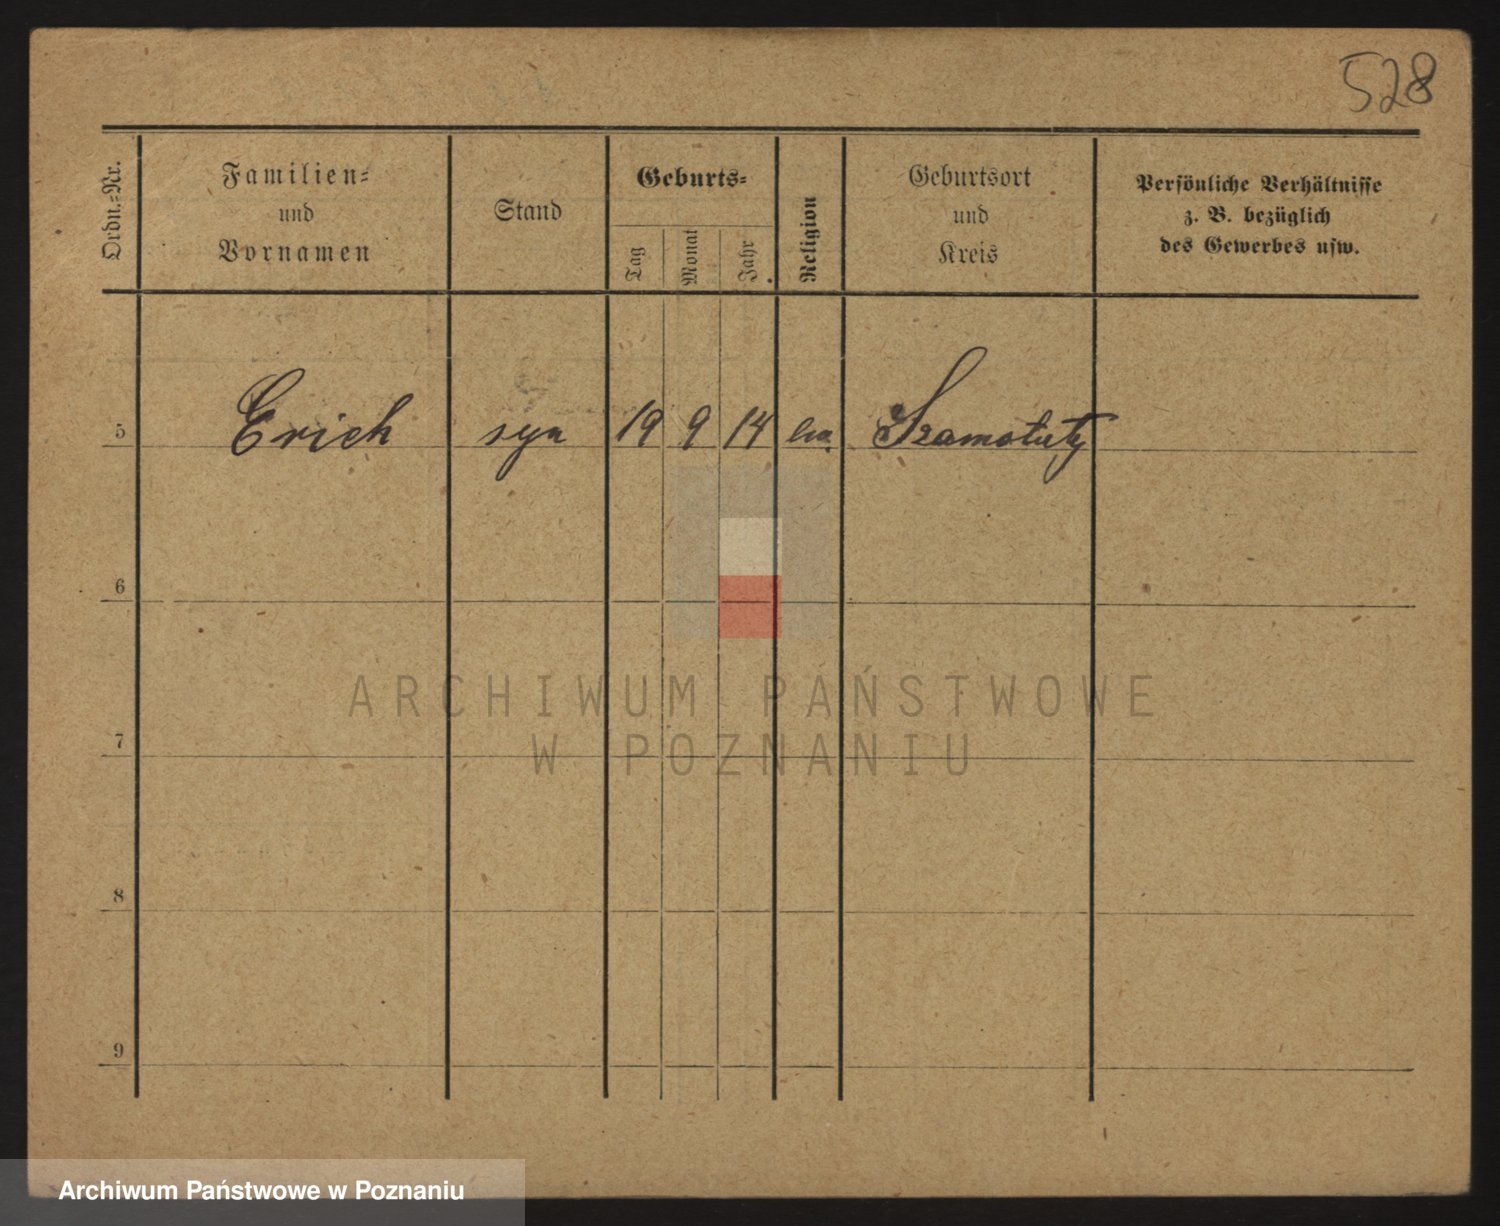 528
Ordn.-Nr.
Familien-
und
Vornamen
Stand
Geburts-
Tag
Monat
Jahr
Religion
Geburtsort
und
Kreis
Persönliche Verhältnisse
z. B. bezüglich
des Gewerbes usw.
5 Erich syn 19 9 14 Szamotuły
6
7
8
9
ARCHIWUM PAŃSTWOWE
W POZNANIU
Archiwum Państwowe w Poznaniu